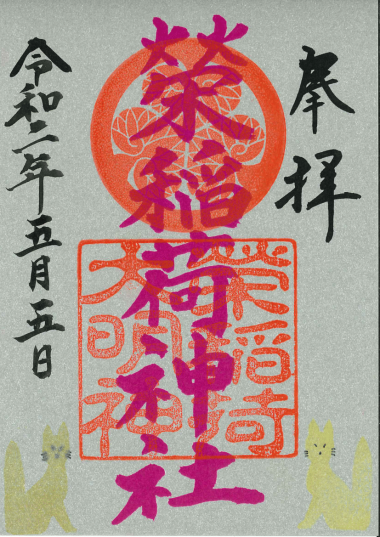 奉拝
榮稲荷神社
榮稲荷
大明神
令和二年五月五日